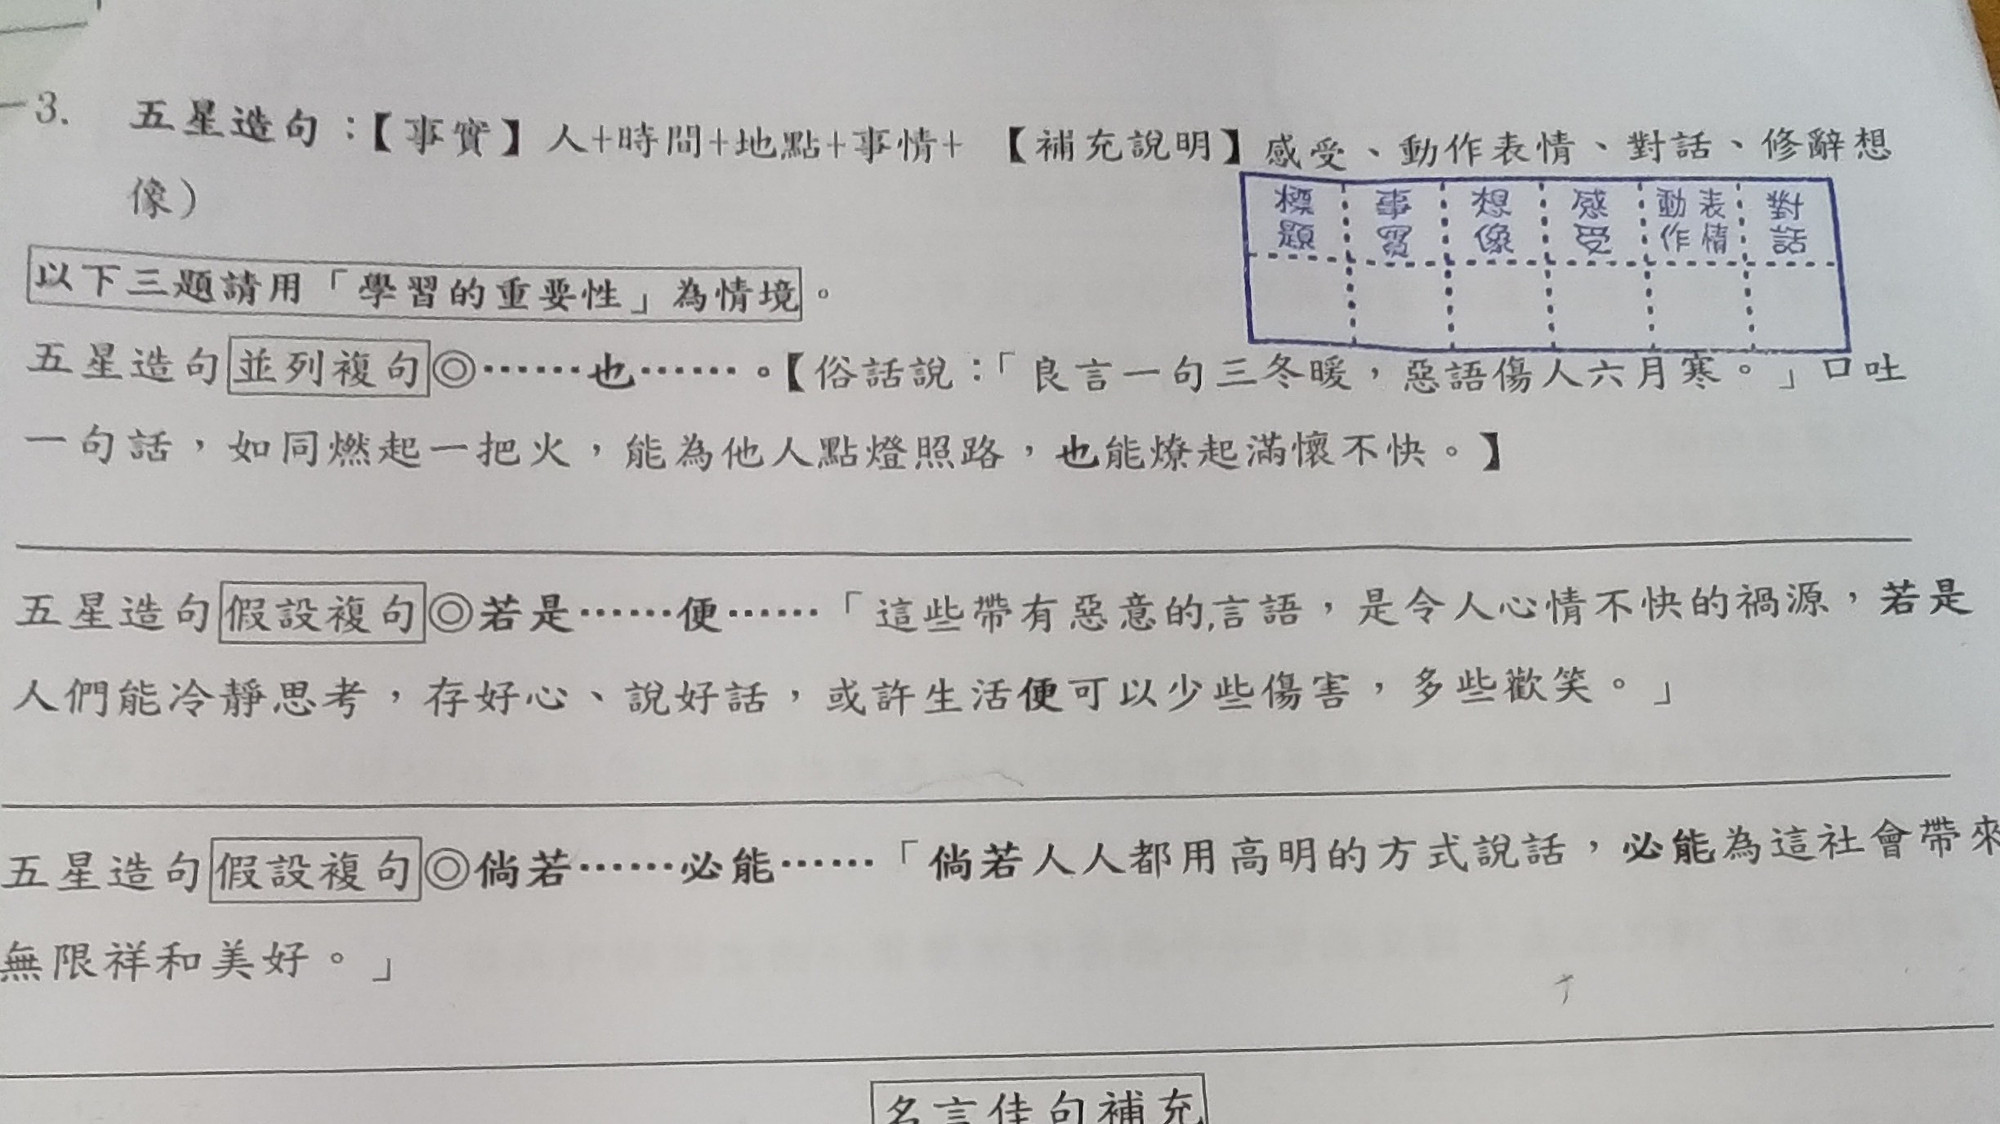 3. 五星造句：【事實】人+時間+地點+事情+ 【補充說明】感受、動作表情、對話、修辭想
像）
標題 事實 想像 感受 動作表情 對話
以下三題請用「學習的重要性」為情境。
五星造句並列複句◎……也……。【俗話說：「良言一句三冬暖，惡語傷人六月寒。」口吐
一句話，如同燃起一把火，能為他人點燈照路，也能燎起滿懷不快。】
五星造句假設複句◎若是……便……「這些帶有惡意的言語，是令人心情不快的禍源，若是
人們能冷靜思考，存好心、說好話，或許生活便可以少些傷害，多些歡笑。」
五星造句假設複句◎倘若……必能……「倘若人人都用高明的方式說話，必能為這社會帶來
無限祥和美好。」
名言佳句補充